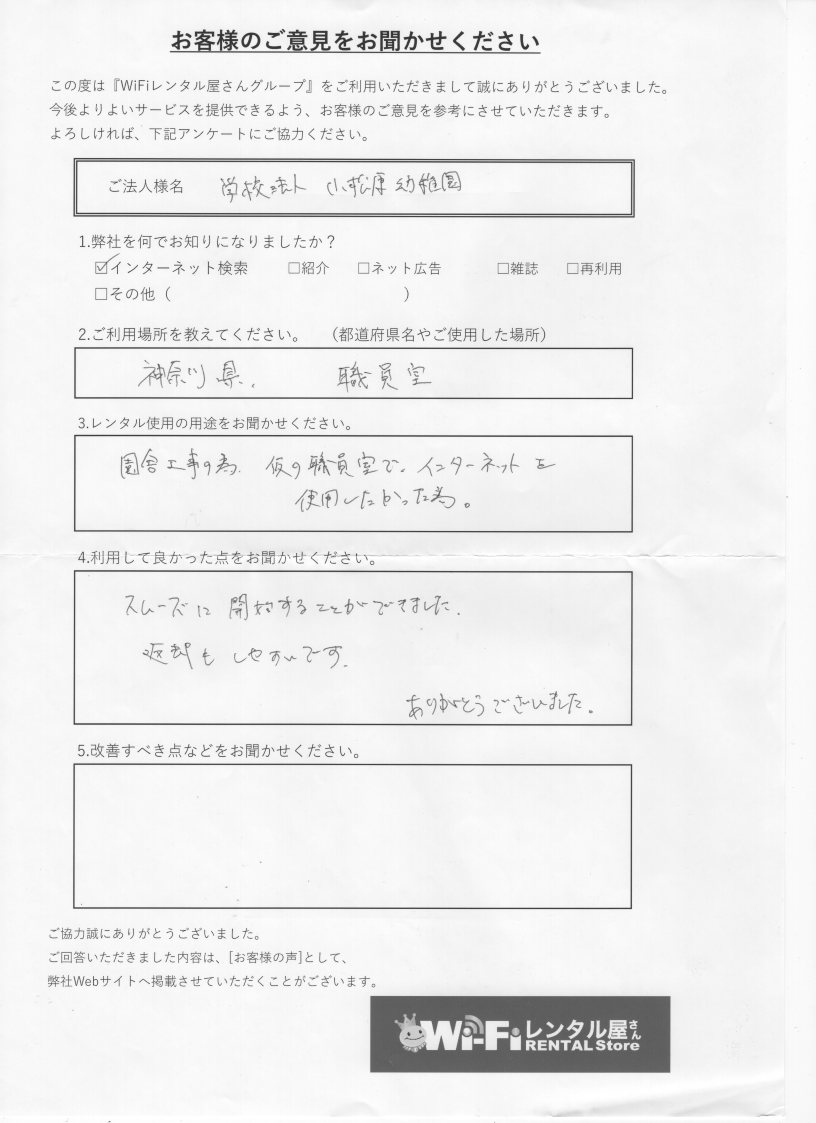 お客様のご意見をお聞かせください
この度は『WiFiレンタル屋さんグループ』をご利用いただきまして誠にありがとうございました。
今後よりよいサービスを提供できるよう、お客様のご意見を参考にさせていただきます。
よろしければ、下記アンケートにご協力ください。
ご法人様名 学校法人 小松原幼稚園
1.弊社を何でお知りになりましたか？
☑インターネット検索 □紹介 □ネット広告 □雑誌 □再利用
□その他（ ）
2.ご利用場所を教えてください。 （都道府県名やご使用した場所）
神奈川県、 職員室
3.レンタル使用の用途をお聞かせください。
園舎工事の為、仮の職員室で、インターネットを
使用したかった為。
4.利用して良かった点をお聞かせください。
スムーズに開始することができました。
返却もしやすいです。
ありがとうございました。
5.改善すべき点などをお聞かせください。
ご協力誠にありがとうございました。
ご回答いただきました内容は、[お客様の声]として、
弊社Webサイトへ掲載させていただくことがございます。
Wi-Fiレンタル屋さん
RENTAL Store